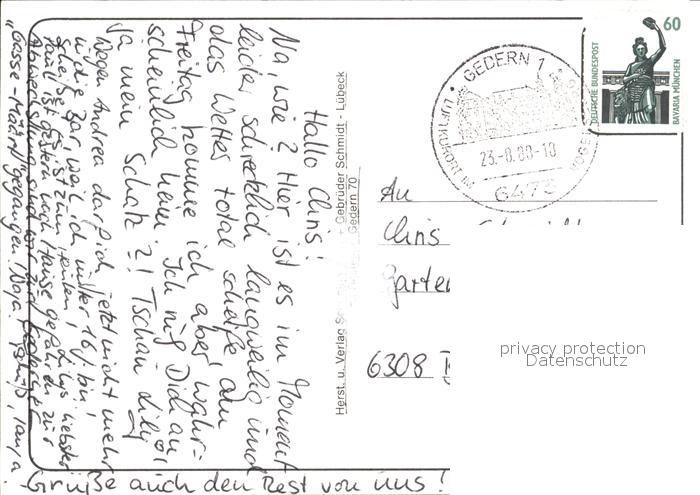 Hallo Chris!
Na, wie? Hier ist es im Moment
leider schrecklich langweilig und
das Wetter total scheiße, am
Freitag komme ich aber wahr=
scheinlich heim. Ich ruf Dich an
Ja mein Schatz?! Tschau
Wegen Andrea darf ich jetzt nicht mehr
in die Bar weil ich unter 16 J. bin,
scheiße! Es ist zum Heulen,
Paul ist gestern nach Hause gefahren zur
Abwechslung sind wir zur
"Gosse-Määrt" gegangen! Naja. Tschüß, Tanja.
Grüße auch den Rest von uns!
Herst. u. Verlag + Gebrüder Schmidt - Lübeck
Gedern 70
GEDERN 1
LUFTKURORT IM
23.-8.88-18
6473
60
DEUTSCHE BUNDESPOST
BAVARIA MÜNCHEN
An
Chris
Garten
6308
privacy protection
Datenschutz